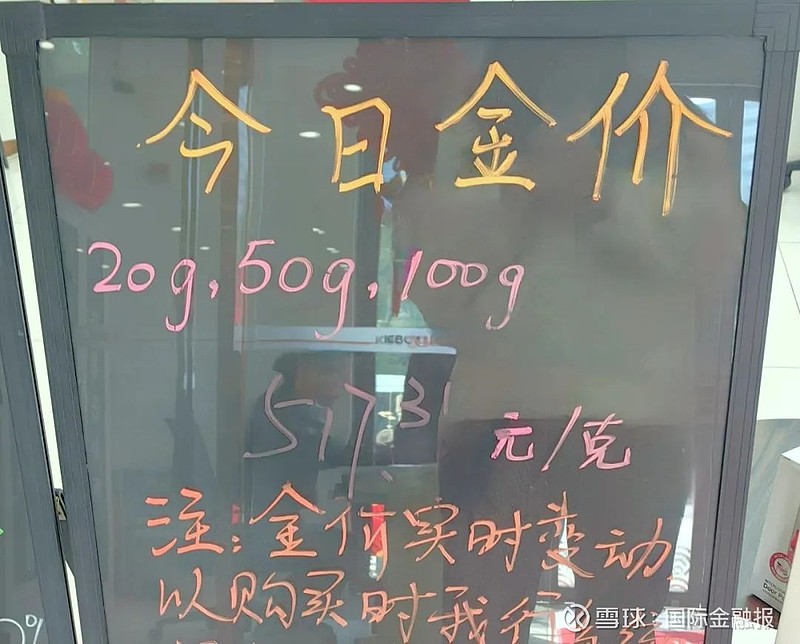 今日金价
20g,50g,100g
517.31 元/克
注:金价实时变动,
以购买时我行
雪球:国际金融报